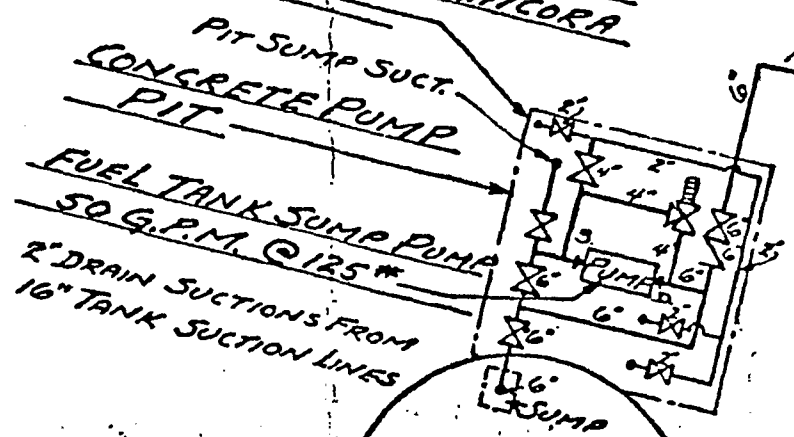 PIT SUMP SUCT.
CONCRETE PUMP
PIT
FUEL TANK SUMP PUMP
50 G.P.M. @ 125#
2" DRAIN SUCTIONS FROM
16" TANK SUCTION LINES
2"
4"
2"
4"
6"
6"
6"
3
4
2"
PUMP
6"
6"
6"
2"
6"
2"
6"
SUMP